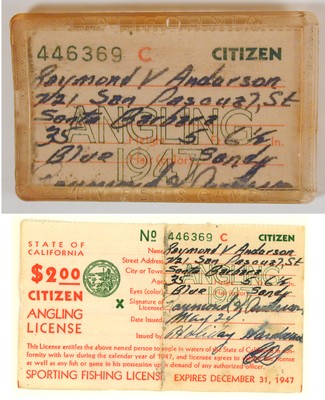 446369 C CITIZEN
Raymond V Anderson
721 San Pasqual, St
Santa Barbara
ANGLING
35 5 6½ In.
Blue Sandy
1947
STATE OF
CALIFORNIA
$2.00
CITIZEN
ANGLING
LICENSE
No 446369 C CITIZEN
Name Raymond V Anderson
Street Address 721 San Pasqual, St
City or Town Santa Barbara
ANGLING
Age 35 5 6½
Eyes Blue Sandy
X Signature of
Licensee
Date Issued May 29
Issued by
This License entitles the above named person to angle in waters of the State of California in con-
formity with law during the calendar year of 1947, and licensee agrees to
as well as any fish or game in his possession upon demand of any authorized officer.
SPORTING FISHING LICENSE EXPIRES DECEMBER 31, 1947